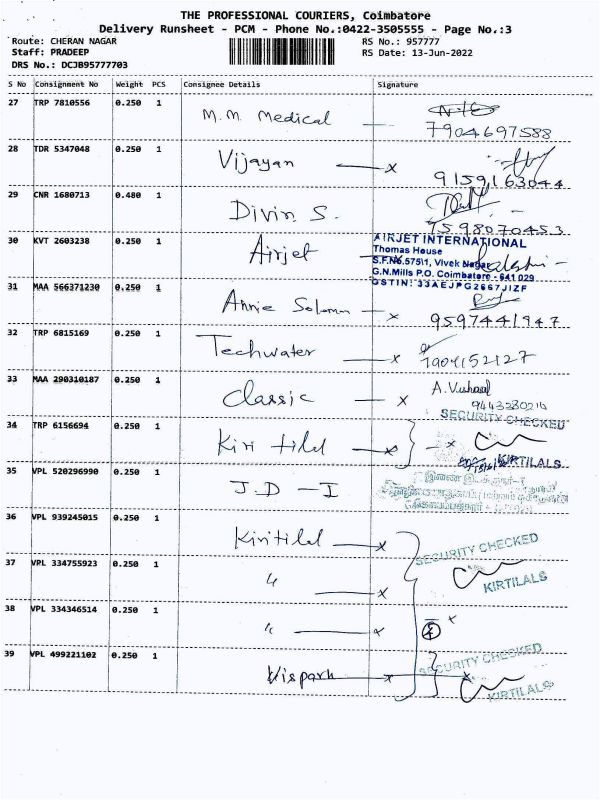 THE PROFESSIONAL COURIERS, Coimbatore
Delivery Runsheet - PCM - Phone No.:0422-3505555 - Page No.:3
Route: CHERAN NAGAR RS No.: 957777
Staff: PRADEEP RS Date: 13-Jun-2022
DRS No.: DCJB95777703
S No Consignment No Weight PCS Consignee Details Signature
27 TRP 7810556 0.250 1 M.M. Medical
7904697588
28 TDR 5347048 0.250 1 Vijayan
9159163044
29 CNR 1680713 0.480 1 Divin S.
7598070453
30 KVT 2603238 0.250 1 Airjet
AIRJET INTERNATIONAL
Thomas House
S.F.No.575\1, Vivek Nagar
G.N.Mills P.O. Coimbatore - 641 029
GSTIN: 33AEJPG2667J1ZF
31 MAA 566371230 0.250 1 Annie Solomon
9597441947
32 TRP 6815169 0.250 1 Techwater
7904152127
33 MAA 290310187 0.250 1 Classic
A. Vishaal
9443280214
SECURITY CHECKED
34 TRP 6156694 0.250 1 Kiri tilal
KIRTILALS
35 VPL 520296990 0.250 1 J.D - I
36 VPL 939245015 0.250 1 Kiritilal
SECURITY CHECKED
37 VPL 334755923 0.250 1 "
KIRTILALS
38 VPL 334346514 0.250 1 "
39 VPL 499221102 0.250 1
SECURITY CHECKED
KIRTILALS